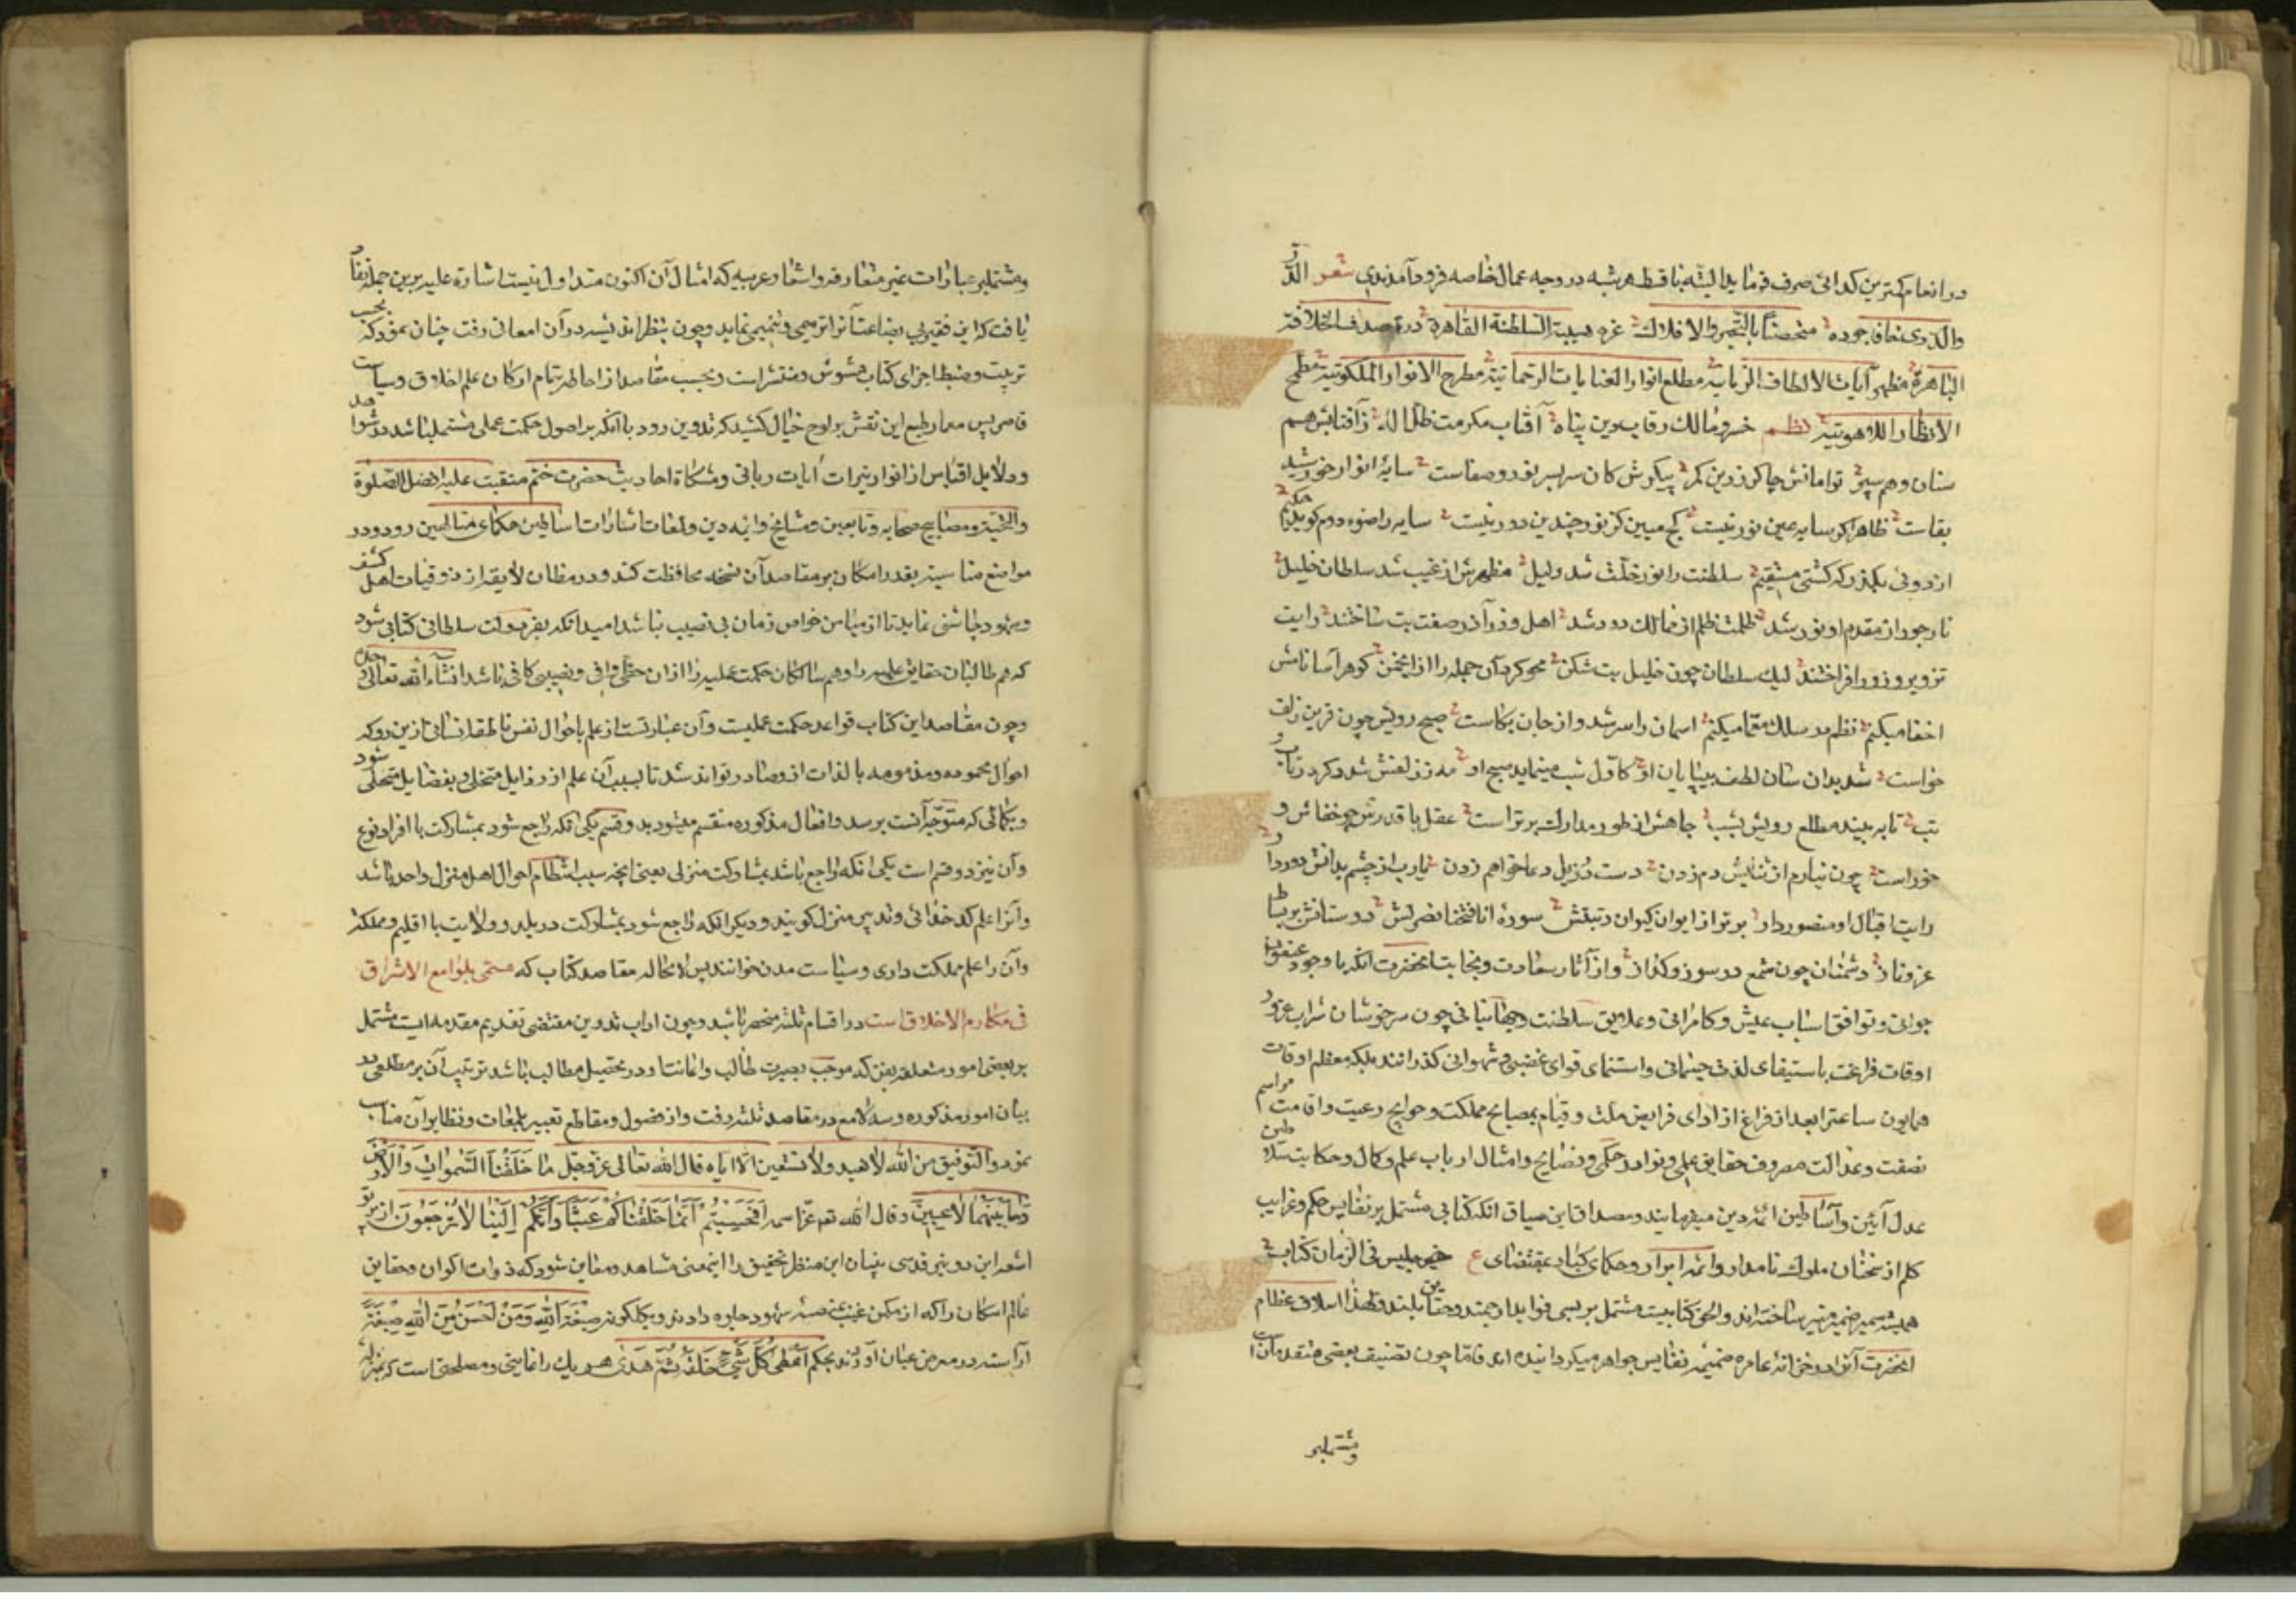 در انعام کمترین کدائی صرف فرماید البته ناقطه بشبه در وجه عمال خاصه فرود آمدندی شعر
والدوی نخاف جوده منحصنا بالتیجر والافلاك غره هیبة السلطنة القاهرة دره صدف الخلافة
الباهرة مظهر آیات الالطاف الربانیه مطلع انوار العنایات الرحمانیة مطرح الانوار الملکوتیة مطمح
الانظار اللاهوتیة نظم خسرو مالك رقاب دین پناه آفتاب مکرمت ظل اله زآفتابش هم
سنان و هم سپر توامانش چاکر زرین کمر پیکرش کان سربسر نور و صفاست سایهٔ انوار خورشید
بقاست ظاهرا کر سایه عین نور نیست کج مبین کز نور چندین دور نیست سایه را ضوء دوم کوید حکیم
از دوئی بکذر که کشتی مستقیم سلطنت را نور خلت شد دلیل مظهرش از غیب شد سلطان خلیل
نار جور از مقدم او نور شد ظلمت ظلم از ممالك دور شد اهل وزر آذر صفت بت ساختند رایت
تزویر و زور افراختند لیك سلطان چون خلیل بت شکن محو کرد آن جمله را از انجمن کوهر آسا نامش
اخفا میکنم نظم در سلك معما میکنم اسمان را سر شد و از جان بکاست صبح رویش چون قرین زلف
خواست شد بدان سان لطف بی پایان او کاول شب مینماید صبح او مه ززلفش شد و کرد
شب تا به بیند مطلع رویش بشب جاهش از طور مدارك برتر است عقل با قدرش چو خفاش و
خوراست چون نیارم از ثنایش دم زدن دست در ذیل دعا خواهم زدن یارب از چشم بدانش دور دار
رایت اقبال او منصور دار برتر از ایوان کیوان رتبتش سورهٔ انا فتحنا نصرتش دوستانش بر بساط
عز و ناز دشمنان چون شمع در سوز و کداز و از آثار سعادت و نجابت انحضرت انکه با وجود عنفوان
جوانی و توافق اسباب عیش و کامرانی و علایق سلطنت و جهانبانی چون سرخوشان شراب غرور
اوقات فراغت باستیفای لذت جسمانی و استنمای قوای غضبی و شهوانی کذرانند بلکه معظم اوقات
همایون ساعترا بعد از فراغ از ادای فرایض ملت و قیام بمصالح مملکت و حوایج رعیت و اقامت مراسم
نصفت و عدالت مصروف حقایق علمی و نوادر حکمی و نصایح و امثال ارباب علم و کمال و حکایت سلاطین
عدل آئین و اساطین ائمه دین میفرمایند و مصداق این سیاق انکه کتابی مشتمل بر نفایس حکم و غرایب
کلم از سخنان ملوك نامدار و ائمه ابرار و حکمای کبار بمقتضای ع خیر جلیس فی الزمان کتاب
همیشه سمیر ضمیر منیر ساخته اند و الحق کتابیست مشتمل بر بسی فواید ارجمند و حقایق بلند و لهذا اسلاف عظام
انحضرت آنرا در خزانه عامره ضمیمه نفایس جواهر میکردانیده اند فاما چون تصنیف بعضی متقدمان است
و مشتمل بر
و مشتمل بر عبارات غیر متعارفه و اشعار عربیه که امثال آن اکنون متداول نیست اشاره علیه برین جمله نفاذ
یافت که این فقیر بی بضاعت آنرا ترمیمی و تتمیمی نماید و چون بنظر اندیشه در آن امعانی رفت چنان نمود که بحسب
ترتیب و ضبط اجزای کتاب مشوش و منتشر است و بحسب مقاصد از احاطه بتمام ارکان علم اخلاق و سیاست
قاصر پس معمار طبع این نقش بر لوح خیال کشید که تدوین رود با آنکه بر اصول حکمت عملی مشتمل باشد در شواهد
و دلایل اقتباس از انوار نیرات آیات ربانی و مشکاة احادیث حضرت ختم منقبت علیه افضل الصلوة
والتحیة و مصابیح صحابه و تابعین و مشایخ و ائمه دین و لمعات اشارات اساطین حکمای متالهین رود و در
مواضع مناسبه بقدر امکان بر مقاصد آن نسخه محافظت کند و در مظان لایقه از ذوقیات اهل کشف
و شهود چاشنی نماید تا از میامن خواص زمان بی نصیب نباشد امید انکه بفر دولت سلطانی کتابی شود
که هم طالبان حقایق علمیه را و هم سالکان حکمت عملیه را از ان حظی وافی و نصیبی کافی باشد انشاء الله تعالی
و چون مقاصد این کتاب قواعد حکمت عملیست و آن عبارتست از علم باحوال نفس ناطقه انسانی از ین رو که
احوال محموده و مذمومه بالذات از و صادر تواند شد تا بسبب آن علم از رذایل متخلی و بفضایل متحلی شود
و بکمالی که متوجه آنست برسد و افعال مذکوره منقسم میشود بدو قسم یکی انکه راجع شود بمشارکت با افراد نوع
و آن نیز دو قسم است یکی انکه راجع باشد بمشارکت منزلی یعنی انچه سبب انتظام احوال اهل منزل واحد باشد
و آنرا علم کدخدائی و تدبیر منزل کویند و دیکر انکه راجع شود بمشارکت در بلد و ولایت با اقلیم و مملکت
و آن را علم مملکت داری و سیاست مدن خوانند پس لا محاله مقاصد کتاب که مسمی بلوامع الاشراق
فی مکارم الاخلاق است در اقسام ثلثه منحصر باشد و چون اداب تدوین مقتضی تقدیم مقدمه ایست مشتمل
بر بعضی امور متعلقه بفن که موجب بصیرت طالب و اعانت او در تحصیل مطالب باشد ترتیب آن بر مطلعی در
بیان امور مذکوره و سه لامع در مقاصد ثلثه رفت و از فصول و مقاطع تعبیر بلمعات و نظایر آن مناسب
نمود والتوفیق من الله لا هید ولا نستعین الا ایاه قال الله تعالی عز و جل مَا خَلَقْنَا السَّمٰوَاتِ وَالْاَرْضَ
وَمَا بَيْنَهُمَا لَاعِبِينَ و قال الله تعم عز اسمه اَفَحَسِبْتُمْ اَنَّمَا خَلَقْنَاكُمْ عَبَثًا وَاَنَّكُمْ اِلَيْنَا لَا تُرْجَعُونَ از پرتو
اشعه این دو نیر قدسی بنیان این منظر تحقیق را اینمعنی مشاهده و معاین شود که ذوات اکوان و حقایق
عالم امکان را که از مکمن غیب بمنصه شهود جلوه دادند و بکلکونه صِبْغَةَ اللّٰهِ وَمَنْ اَحْسَنُ مِنَ اللّٰهِ صِبْغَةً
آراسته در معرض عیان آوردند بحکم اَعْطٰی کُلَّ شَیْءٍ خَلْقَهُ ثُمَّ هَدٰی هر یك را غایتی و مصلحتی است که بمنزله